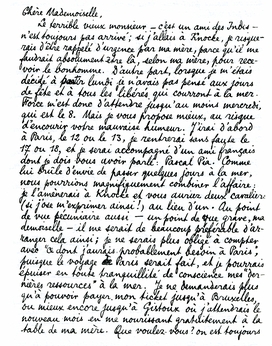 Chère Mademoiselle,
Le terrible vieux monsieur – c'est un ami des Indes –
n'est toujours pas arrivé ; si j'allais à Knocke, je risque-
rais d'être rappelé d'urgence par ma mère, parce qu'il me
faudrait absolument être là, selon ma mère, pour rece-
voir le bonhomme. D'autre part, lorsque je m'étais
décidé à partir lundi, je n'avais pas pensé aux jours
de fête et à tous les libérés qui courront à la mer.
Force m'est donc d'attendre jusqu'au moins mercredi,
qui est le 8. Mais je vous propose mieux, au risque
d'encourir votre mauvaise humeur. J'irai d'abord
à Paris, le 12 ou le 13, je rentrerai sans faute le
17 ou 18, et je serai accompagné d'un ami français
dont je dois vous avoir parlé : Pascal Pia. Comme
lui brûle d'envie de passer quelques jours à la mer,
nous pourrions magnifiquement combiner l'affaire :
je l'amènerais à Knocke et vous auriez deux cavaliers
(si j'ose m'exprimer ainsi,) au lieu d'un. Au point
de vue pécuniaire aussi – un point de vue grave, ma-
demoiselle – il me serait de beaucoup préférable d'ar-
ranger cela ainsi ; je ne serais plus obligé à compter
avec ce dont j'aurais probablement besoin à Paris ;
puisque le voyage de Paris serait fait, et je pourrais
épuiser en toute tranquillité de conscience mes "der-
nières ressources" à la mer. Je ne demanderais plus
qu'à pouvoir payer mon ticket jusqu'à Bruxelles,
ou mieux encore jusqu'à Gistoux où j'attendrais le
nouveau mois en me nourrissant gratuitement à la
table de ma mère. Que voulez-vous? on est toujours